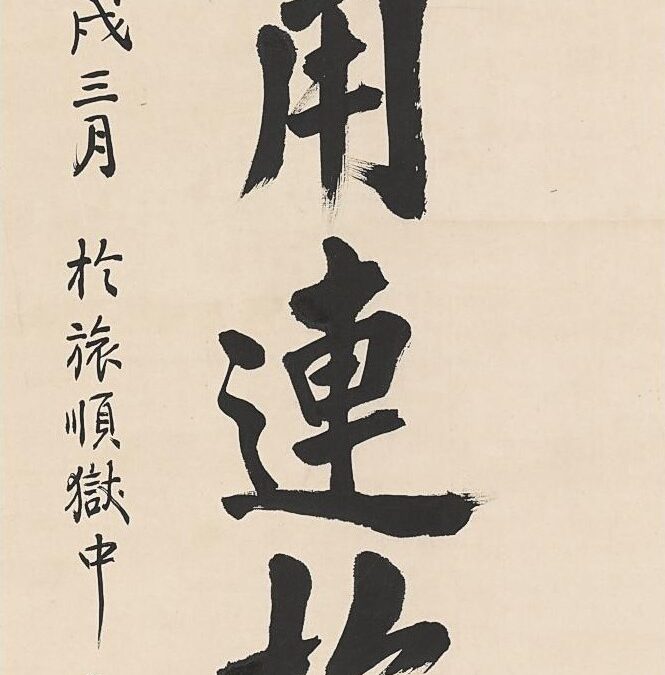 用連
戌三月 於旅順獄中